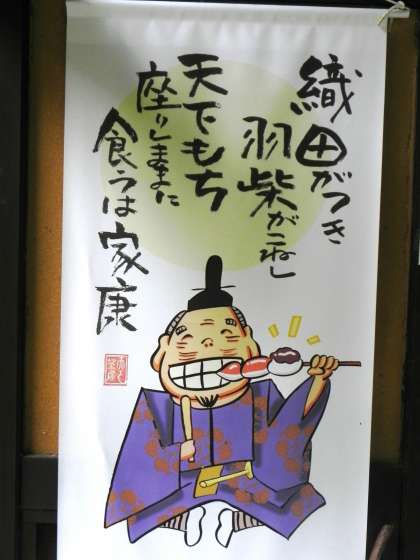 織田がつき
羽柴がこねし
天下もち
座りしままに
食うは家康